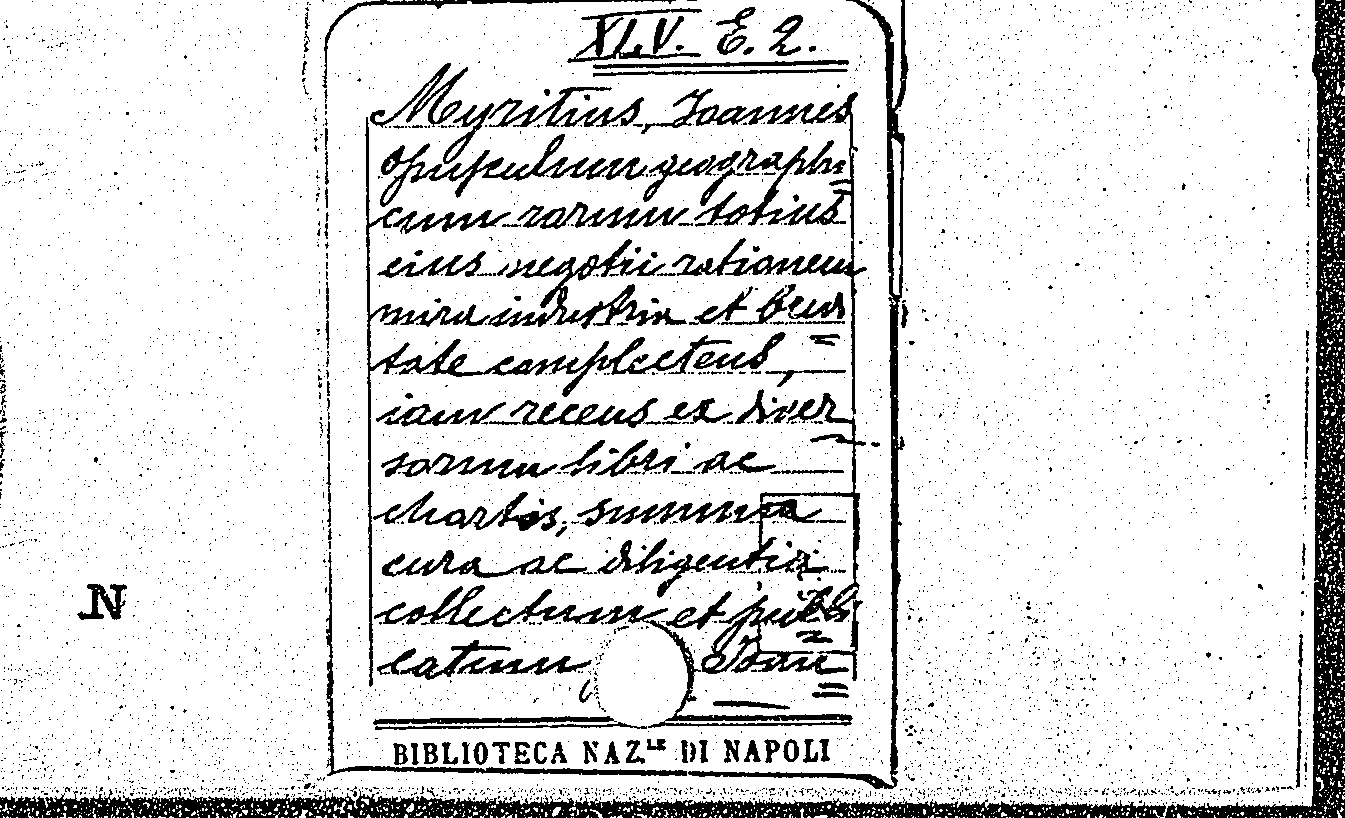 XLV. E. 2.
Myritius, Joannes
Opusculum geographi=
cum rarum totius
eius negotii rationem
mira industria et brevi=
tate complectens,
iam recens ex diver-
sorum libri ac
chartis, summa
cura ac diligentia
collectum et publi=
catum Joan=
N
BIBLIOTECA NAZ.LE DI NAPOLI